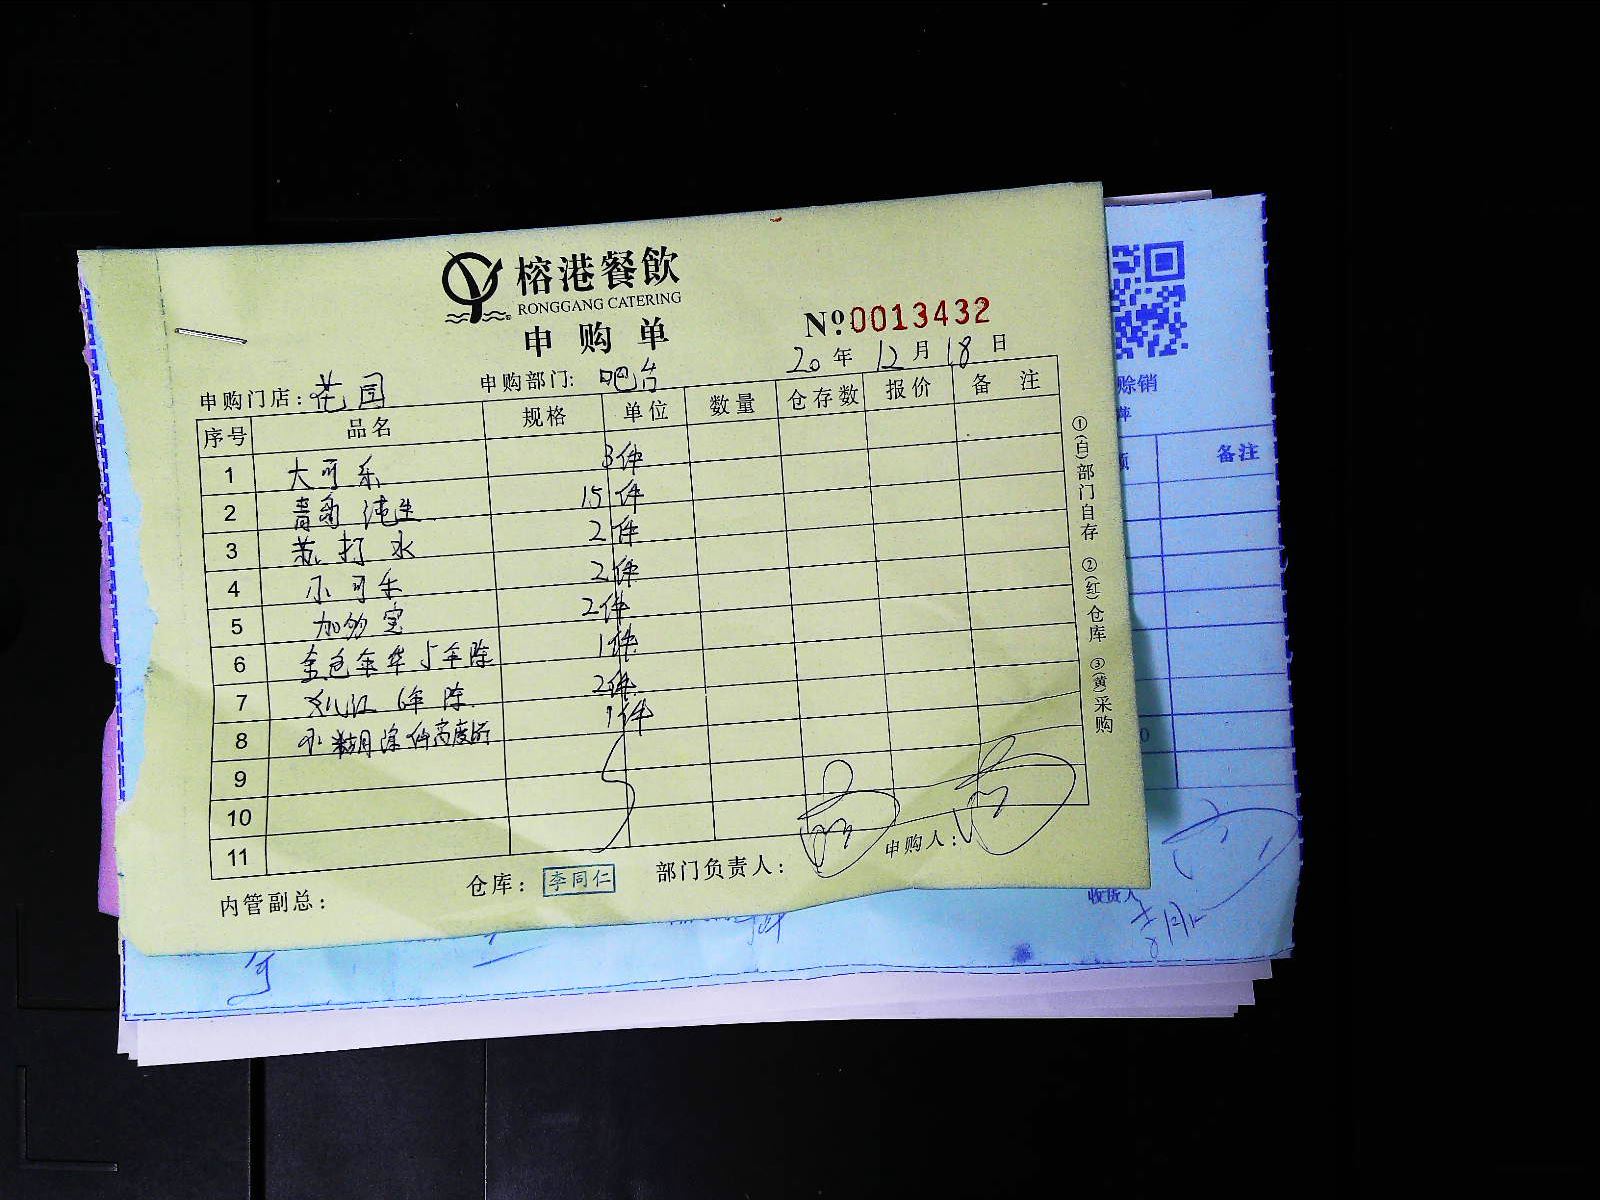 榕港餐飲
RONGGANG CATERING
申购单
Nº 0013432
20年12月18日
申购门店：花园 申购部门：吧台
序号 品名 规格 单位 数量 仓存数 报价 备注
1 大可乐 3件
2 青岛纯生 15件
3 苏打水 2件
4 小可乐 2件
5 加多宝 2件
6 金色年华5年陈 1件
7 6年陈 2件
8 1件
9
10
11
内管副总： 仓库：李同仁 部门负责人： 申购人：
①(白)部门自存 ②(红)仓库 ③(黄)采购
赊销
备注
收货人